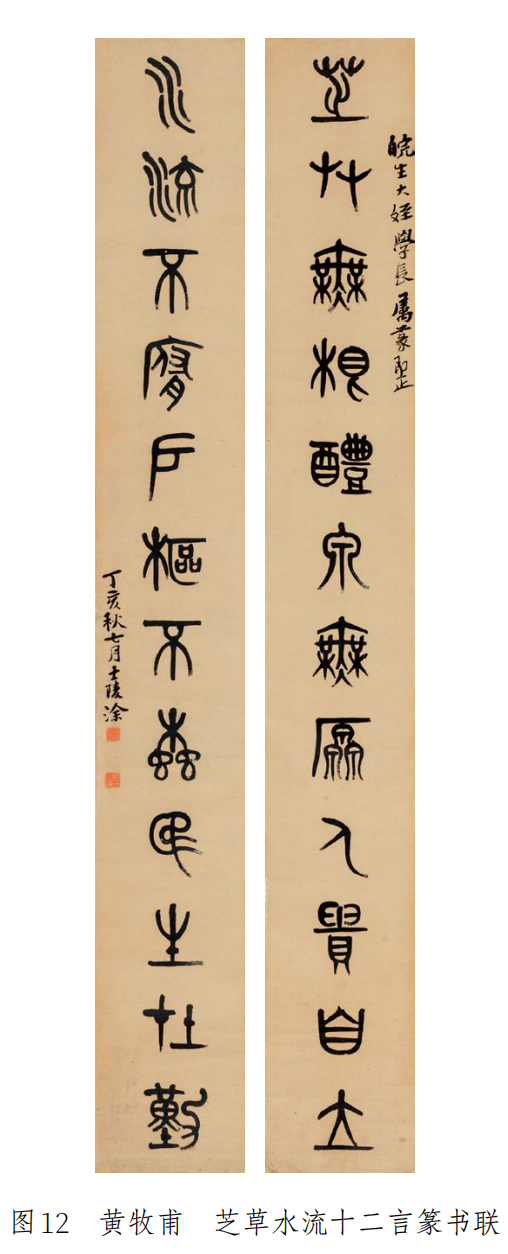 皖生大姪學長屬篆即正
芝艸無根醴泉無厵人貴自立
水流不腐戶樞不螙民生在勤
丁亥秋七月士陵涂
图12 黄牧甫 芝草水流十二言篆书联